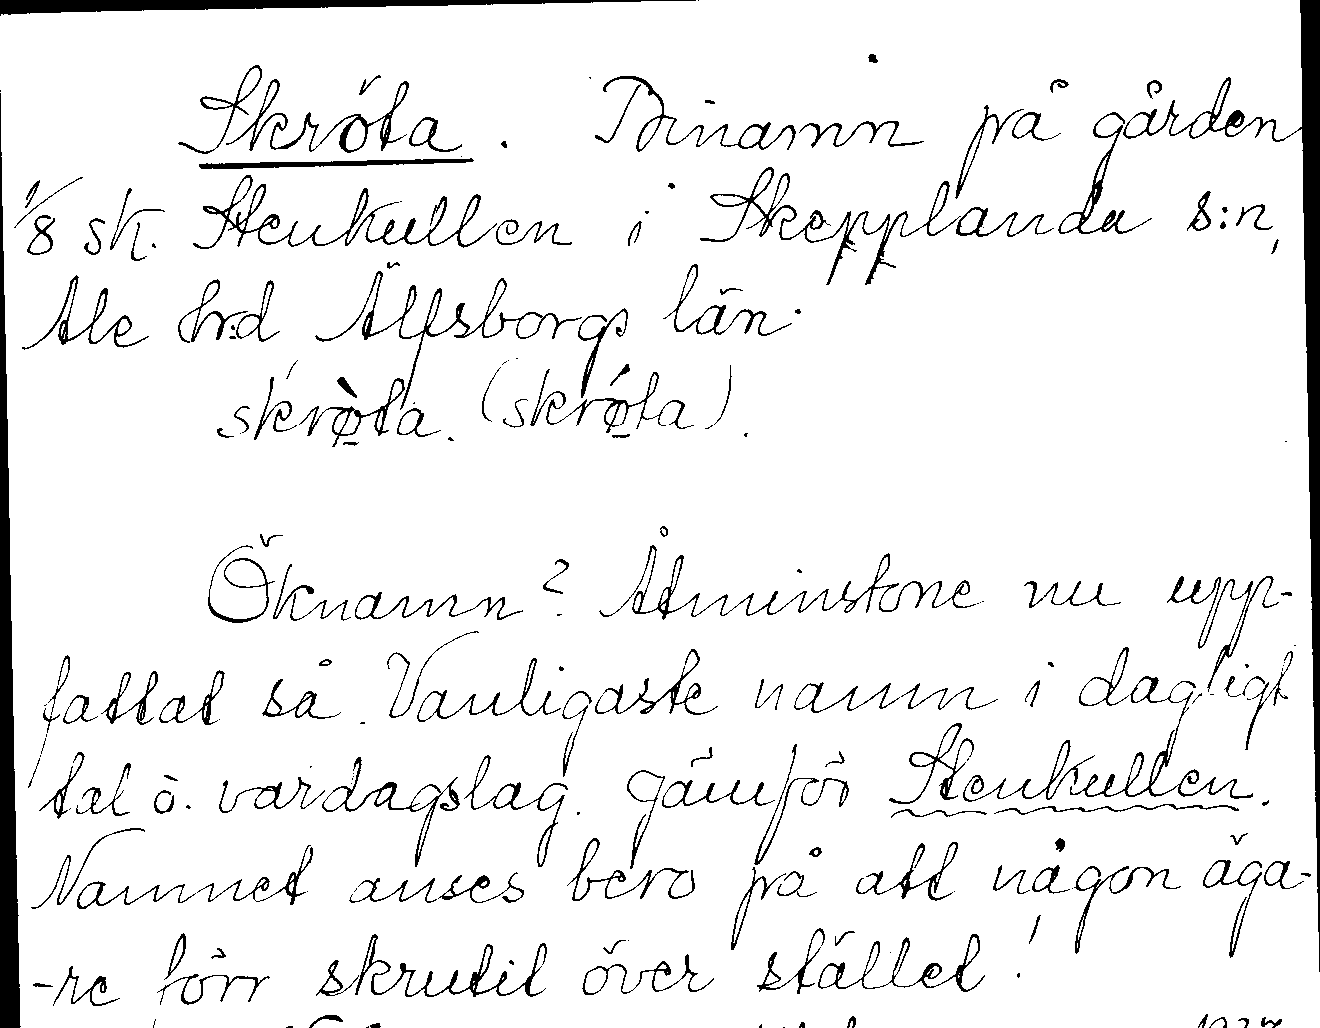 Skröta. Binamn på gården
1/8 sk. Stenkullen i Skepplanda s:n,
Ale hrd Älfsborgs län.
skrø̀ta. (skrǿta).
Öknamn? Åtminstone nu upp-
fattat så. Vanligaste namn i dagligt
tal o. vardagslag. Jämför Stenkullen.
Namnet anses bero på att någon äga-
-re förr skrutit över stället!